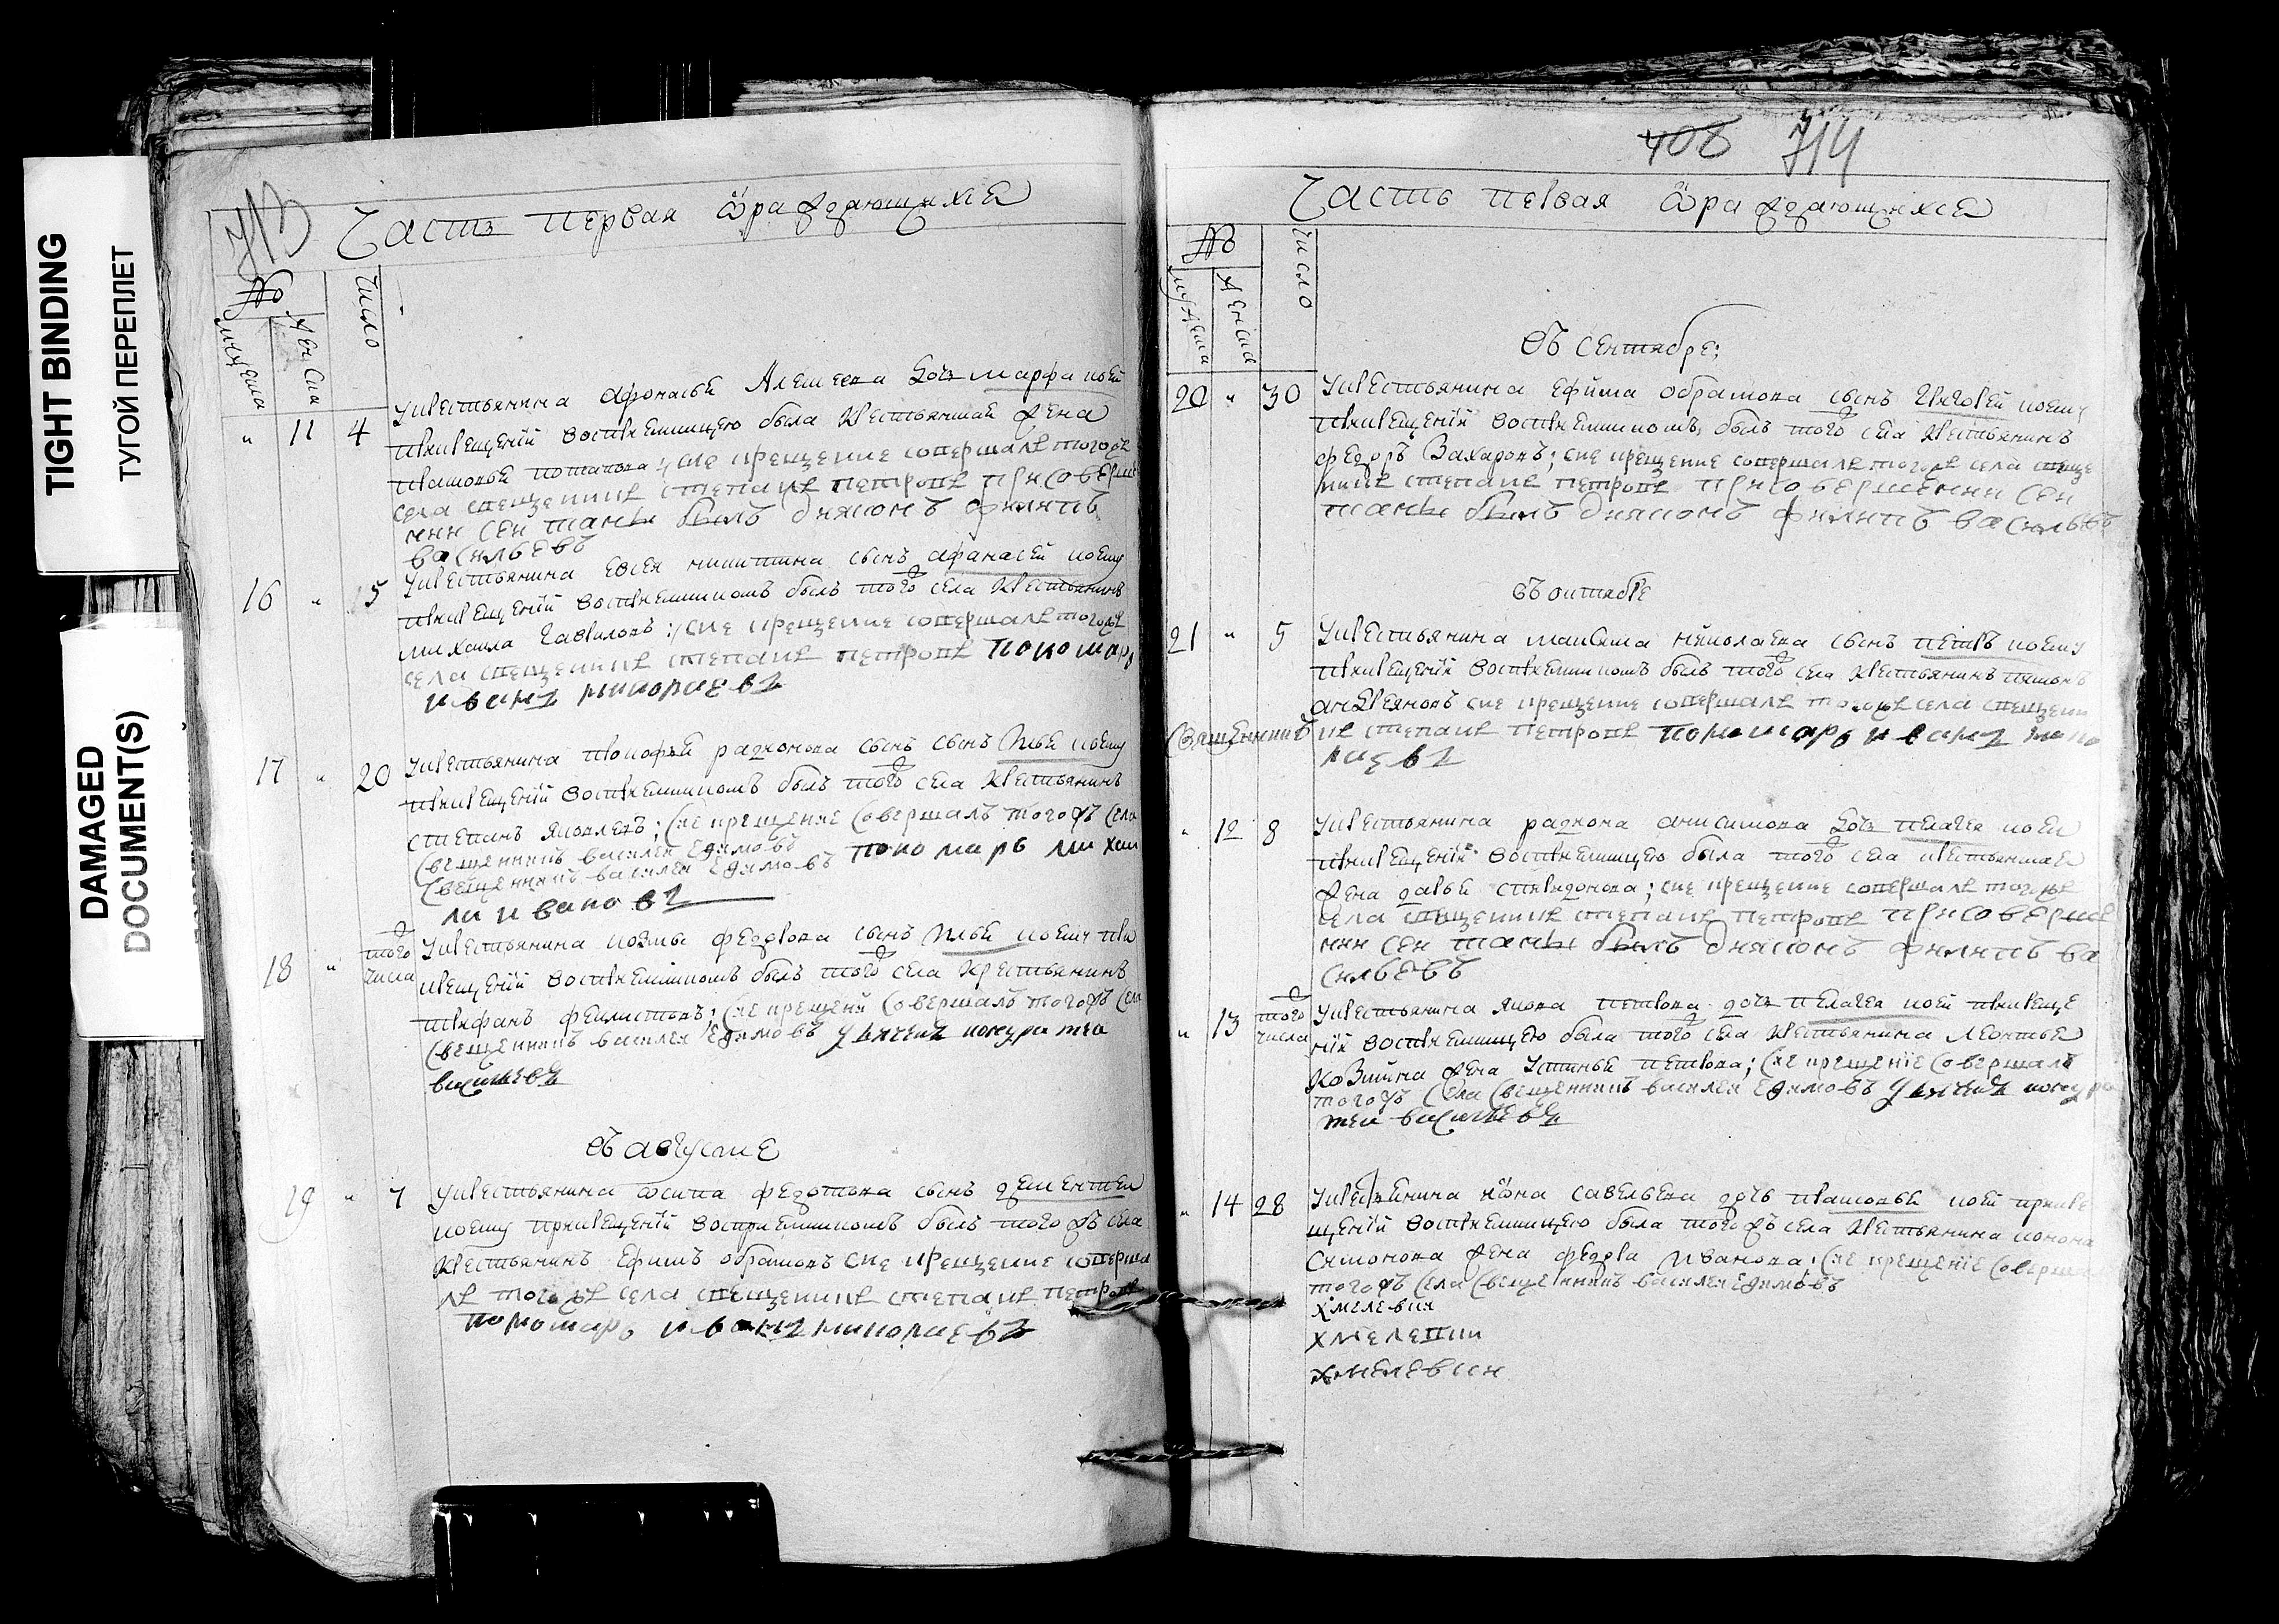 TIGHT BINDING
ТУГОЙ ПЕРЕПЛЕТ
DAMAGED
DOCUMENT(S)
713
Часть первая ѡраждающихся
№
мужеска
женска
число
" 11 4
У крестьянина Афонасья Алешева дочь марфа коей
при крещеніи воспріемницею была крестьянская жена
потапова; сие крещение совершалъ тогожъ
села свещенникъ степанъ петровъ при соверше
нии сей таинъ былъ дияконъ филипъ
васильевъ
16 " 5
У крестьянина Евсея никитина сынъ афанасей коему
при крещеніи воспріемникомъ былъ тогожъ села крестьянинъ
михаила гавриловъ; сие крещение совершалъ тогожъ
села свещенникъ степанъ петровъ пономарь
иванъ николаевъ
17 " 20
У крестьянина прокофья радионова сынъ сынъ Илья коему
при крещеніи воспріемникомъ былъ тогожъ села крестьянинъ
степанъ яковлевъ; сие крещение совершалъ тогожъ села
свещенникъ василей Ефимовъ
свещенникъ василей Ефимовъ пономарь михаи
ла ивановъ
18 " тогожъ числа
У крестьянина козмы федорова сынъ Илья коему при
крещеніи воспріемникомъ былъ тогожъ села крестьянинъ
трифанъ; сие крещение совершалъ тогожъ села
свещенникъ василей Ефимовъ
васильевъ
въ августе
19 " 7
У крестьянина осипа федотова сынъ дементей
коему при крещеніи воспріемникомъ былъ тогожъ села
крестьянинъ Ефимъ обрамовъ сие крещение соверша
лъ тогожъ села свещенникъ степанъ петровъ
пономарь иванъ николаевъ
408 714
Часть первая ѡраждающихся
№
мужеска
женска
число
въ сентябре;
20 " 30
У крестьянина ефима обрамова сынъ григорей коему
при крещеніи воспріемникомъ былъ тогожъ села крестьянинъ
федоръ Захаровъ; сие крещение совершалъ тогожъ села свеще
нникъ степанъ петровъ при совершении сей
таинъ былъ дияконъ филипъ васильевъ
въ октябре
21 " 5
У крестьянина максима николаева сынъ петръ коему
при крещеніи воспріемникомъ былъ тогожъ села крестьянинъ
андреяновъ сие крещение совершалъ тогожъ села свещенни
Священникъ
къ степанъ петровъ пономарь иванъ нико
лаевъ
" 12 8
У крестьянина радиона анисимова дочь пелагея коей
при крещеніи воспріемницею была тогожъ села крестьянская
жена дарья спиридонова; сие крещение совершалъ тогожъ
села свещенникъ степанъ петровъ при соверше
нии сей таинъ былъ дияконъ филипъ ва
сильевъ
" 13 тогожъ числа
У крестьянина якова петрова дочь пелагея коей при креще
ніи воспріемницею была тогожъ села крестьянина леонтья
козмина жена Устинья петрова; сие крещение совершалъ
тогожъ села свещенникъ василей Ефимовъ
васильевъ
" 14 28
У крестьянина савельева дочь прасковья коей при кре
щеніи воспріемницею была тогожъ села крестьянина
Симонова жена федора Иванова; сие крещение соверша
тогожъ села свещенникъ василей Ефимовъ
хмелевки
хмелевки
хмелевки